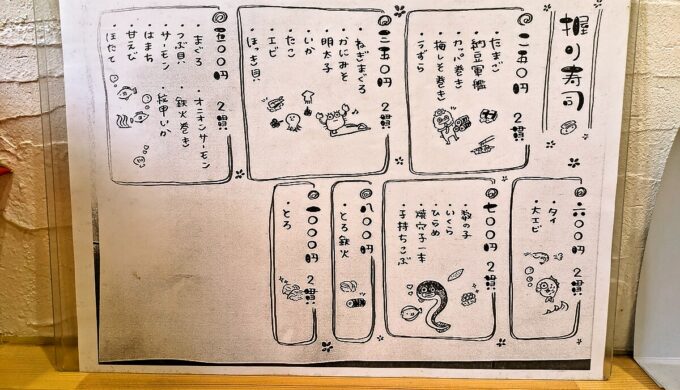 握り寿司
二五〇円 2貫
・たまご
・納豆軍艦
・カッパ巻き
・梅しそ巻き
・うずら
三五〇円 2貫
・ねぎまぐろ
・かにみそ
・明太子
・いか
・たこ
・エビ
・ほっき貝
五〇〇円 2貫
・まぐろ
・つぶ貝
・サーモン
・はまち
・甘えび
・ほたて
・オニオンサーモン
・鉄火巻き
・紋甲いか
六〇〇円 2貫
・タイ
・大エビ
七〇〇円 2貫
・数の子
・いくら
・ひらめ
・焼穴子一本
・子持ちこぶ
八〇〇円
・とろ鉄火
一〇〇〇円 2貫
・とろ